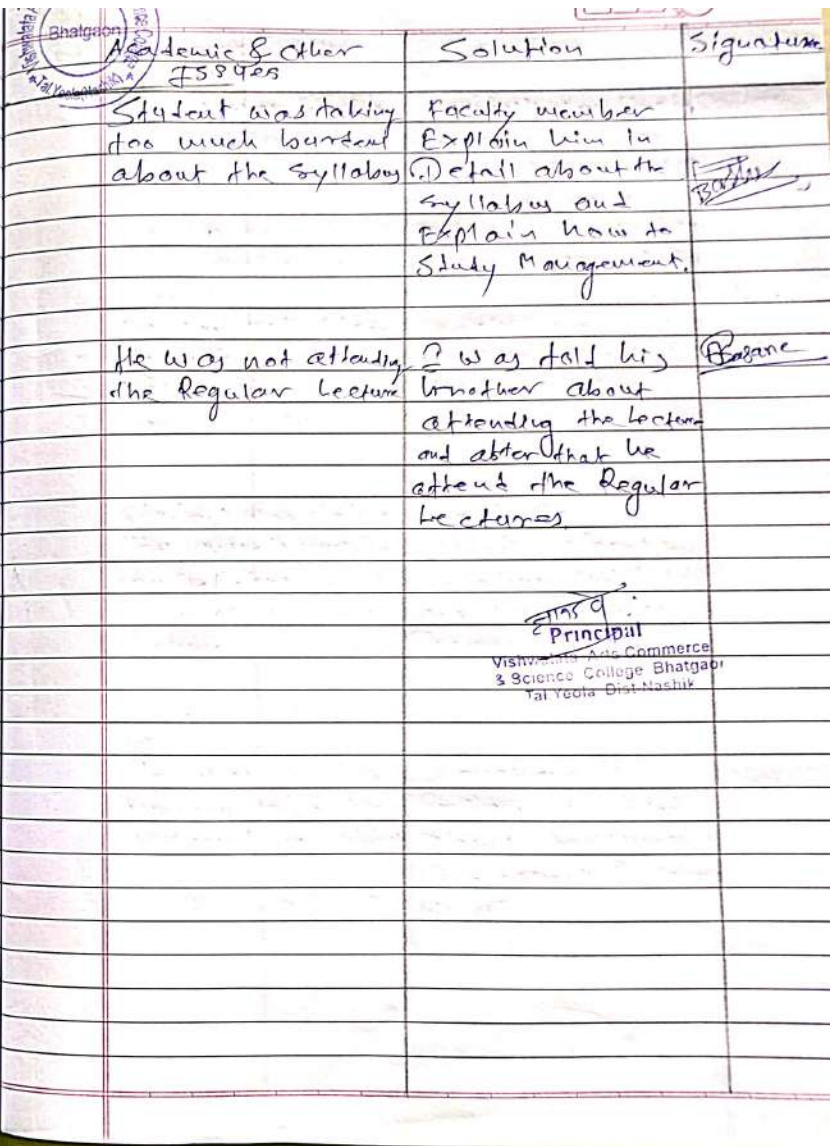 Bhatgaon
Academic & Other
Issues
Solution
Signature
Student was taking
too much burden
about the syllabus
Faculty member
Explain him in
Detail about the
syllabus and
Explain how to
Study Management.
He was not attending
the Regular Lecture
I was told his
brother about
attending the Lecture
and after that he
attend the Regular
Lectures
Principal
Vishwalata Arts Commerce
& Science College Bhatgaon
Tal Yeola Dist-Nashik